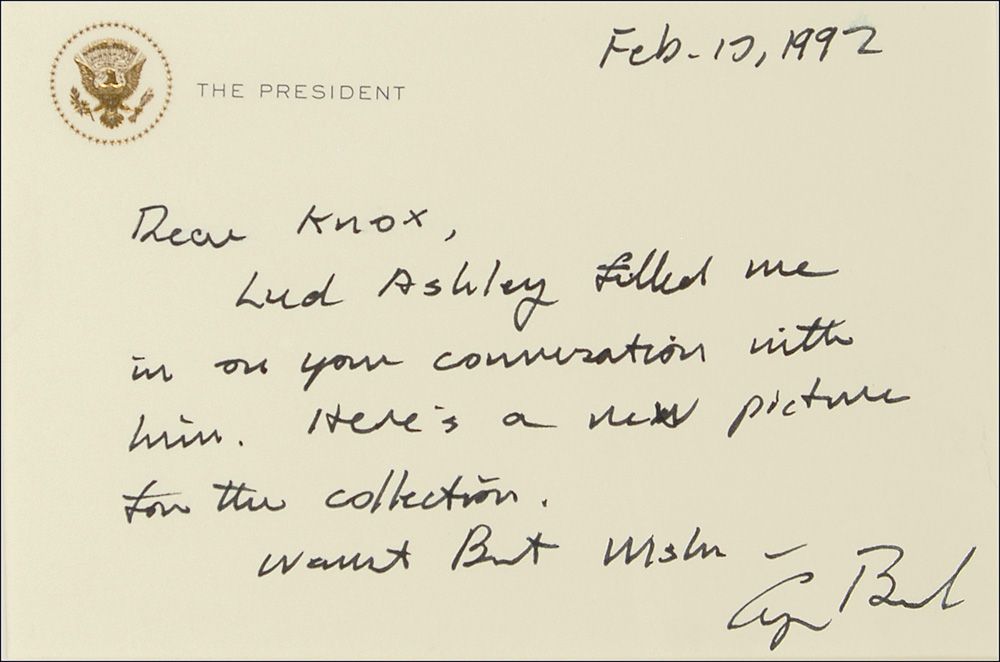 Feb. 10, 1992
THE PRESIDENT
Dear Knox,
Lud Ashley filled me
in on your conversation with
him. Here's a new picture
for the collection.
Warmest Best Wishes -
George Bush